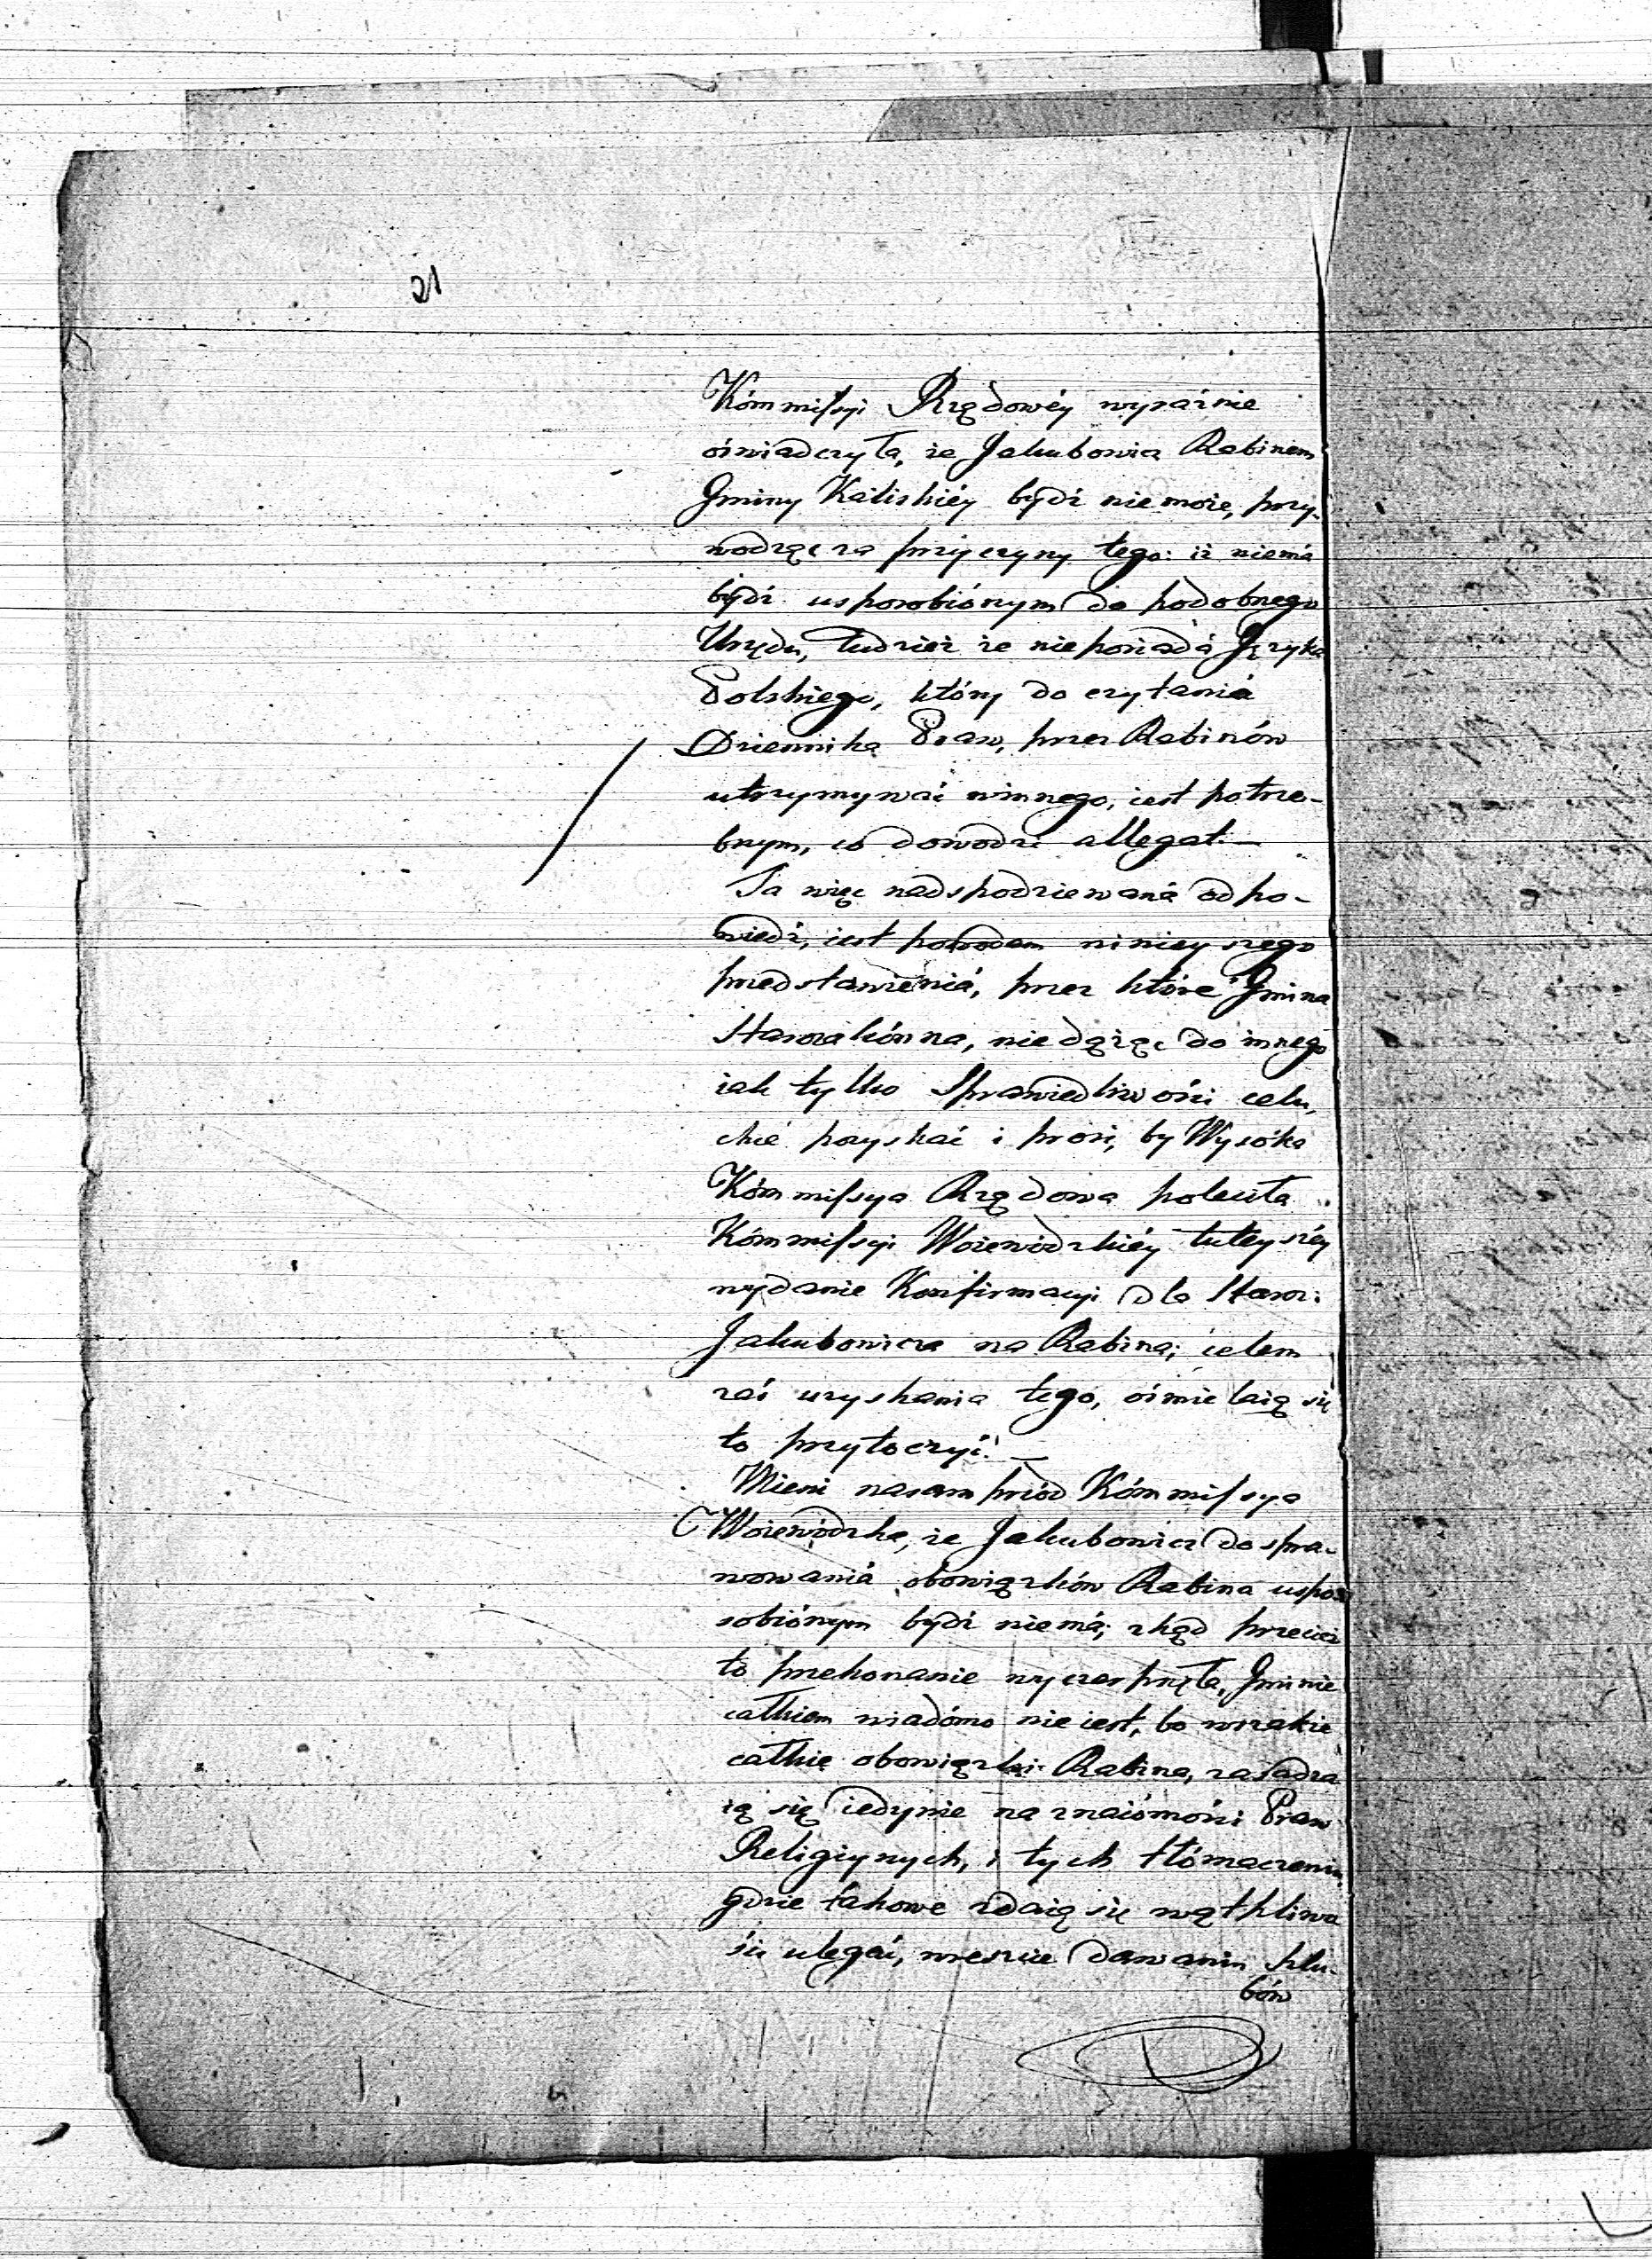 21
Kómmissyi Rządowéy wyraźnie
oświadczyła, że Jakubowicz Rabinem
Gminy Kaliskiéy bydź nie może, przy-
wodząc za przyczyny tego: iż niema
bydź usposobiónym do podobnego
Urzędu, tudzież że nieposiadá Języka
Polskiego, który do czytaniá
Dziennika Praw, przez Rabinów
utrzymywać winnego, iest potrze-
bnym, co dowodzi allegat.—
Ta więc nadspodziewaná odpo-
wiedź, iest powodem ninieyszego
przedstawieniá, przez które Gmina
Starozakónna, nie dążąc do innego
iak tylko Sprawiedliwości celu,
chce pozyskać i prosi, by Wysóka
Kómmissya Rządowa poleciła
Kómmissyi Woiewódzkiéy tuteyszéy
wydanie Konfirmacyi dla Staroz:
Jakubowicza na Rabina; celem
zaś uzyskania tego, ośmielaią się
to przytoczyć.—
Mieni nasamprzód Kómmissya
Woiewódzka, że Jakubowicz do spra-
wowaniá obowiązków Rabina uspo-
sobiónym bydź niemá; zkąd przecież
to przekonanie wyczerpnęła, Gminie
całkiem wiadómo nie iest, bo wszakże
całkie obowiązki Rabina, zasadza
ią się iedynie na znaiómości Praw
Religiynych, i tych tłómaczeniu
gdzie takowe zdaią się wątpliwo
ści ulegać, wreszcie dawaniu szlu-
bów